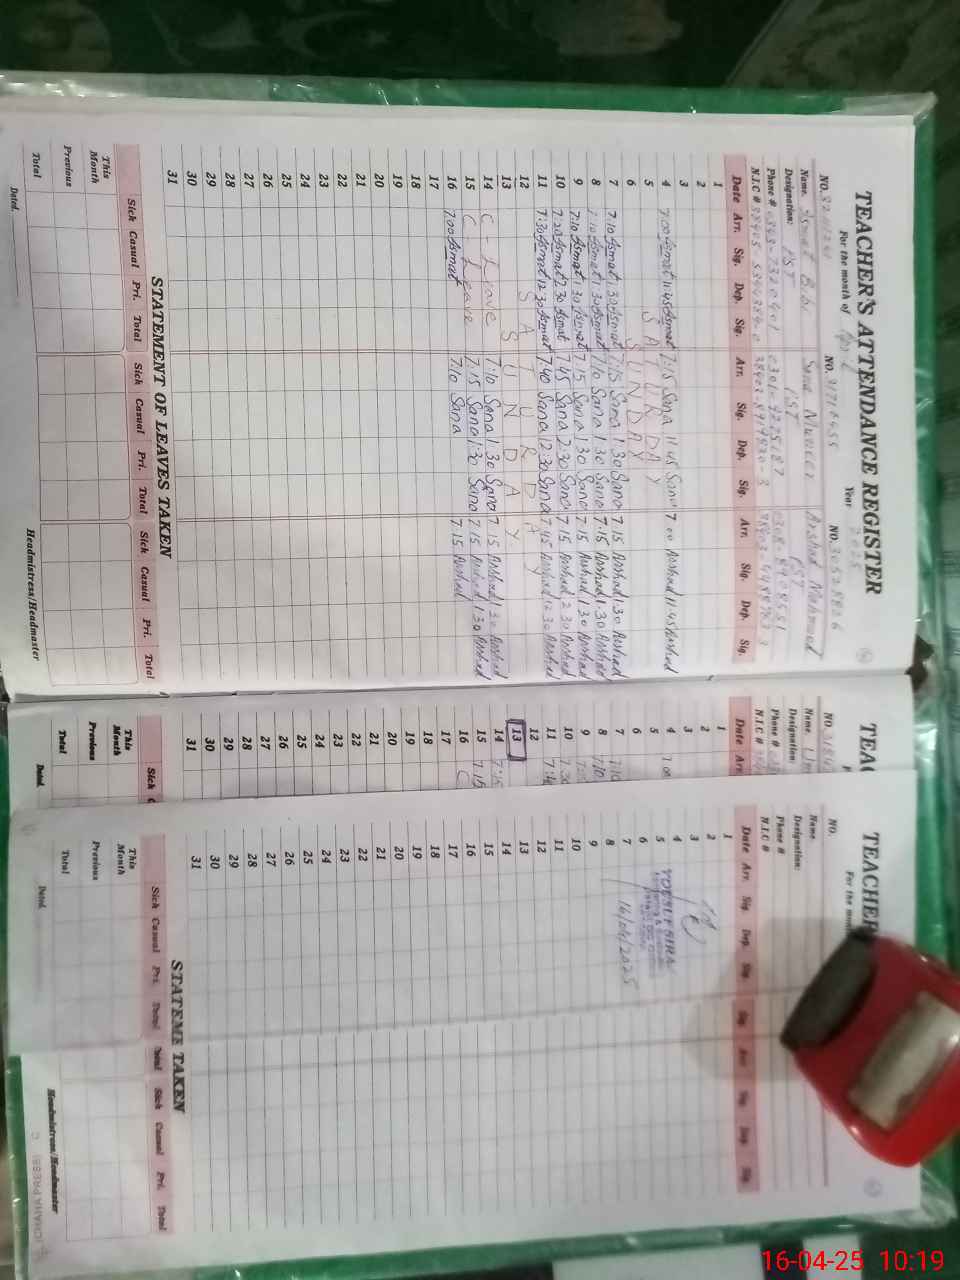 TEACHER'S ATTENDANCE REGISTER
For the month of April Year 2025
NO. NO. 31716455 NO. 30528826
Name. Ismat Bibi Sana Muneer Arshad Mahmood
Designation: PST PST PST
Phone # 0301-9225187
N.I.C #
Date Arr. Sig. Dep. Sig. Arr. Sig. Dep. Sig. Arr. Sig. Dep. Sig.
1
2
3
4 7:00 Asmat 11:45 Asmat 7:15 Sana 11:45 Sana 7:00 Arshad 11:45 Arshad
5 SATURDAY
6 SUNDAY
7 7:10 Asmat 1:30 Asmat 7:15 Sana 1:30 Sana 7:15 Arshad 1:30 Arshad
8 7:10 Asmat 1:30 Asmat 7:10 Sana 1:30 Sana 7:15 Arshad 1:30 Arshad
9 7:10 Asmat 1:30 Asmat 7:15 Sana 1:30 Sana 7:15 Arshad 1:30 Arshad
10 7:20 Asmat 2:30 Asmat 7:45 Sana 2:30 Sana 7:15 Arshad 2:30 Arshad
11 7:30 Asmat 12:30 Asmat 7:40 Sana 12:30 Sana 7:45 Arshad 12:30 Arshad
12 SATURDAY
13 SUNDAY
14 C - Leave 7:10 Sana 1:30 Sana 7:15 Arshad 1:30 Arshad
15 C - Leave 7:15 Sana 1:30 Sana 7:15 Arshad 1:30 Arshad
16 7:00 Asmat 7:10 Sana 7:15 Arshad
17
18
19
20
21
22
23
24
25
26
27
28
29
30
31
STATEMENT OF LEAVES TAKEN
Sick Casual Pri. Total Sick Casual Pri. Total Sick Casual Pri. Total
This Month
Previous
Total
Dated. Headmistress/Headmaster
TEAC
NO.
Name.
Designation:
Phone #
N.I.C #
Date Arr
1
2
3
4 7:00
5
6
7 7:10
8 7:10
9
10
11
12
13
14 7:15
15 7:15
16 C
17
18
19
20
21
22
23
24
25
26
27
28
29
30
31
Sick C
This Month
Previous
Total
Dated.
TEACHER
For the mon
NO.
Name
Designation:
Phone #
N.I.C #
Date Arr. Sig. Dep. Sig. Sig. Arr. Sig. Dep. Sig.
1
2
3
4
5
6
7 16/04/2025
8
9
10
11
12
13
14
15
16
17
18
19
20
21
22
23
24
25
26
27
28
29
30
31
STATEME TAKEN
Sick Casual Pri. Total Total Sick Casual Pri. Total
This Month
Previous
Total
Dated. Headmistress/Headmaster
16-04-25 10:19